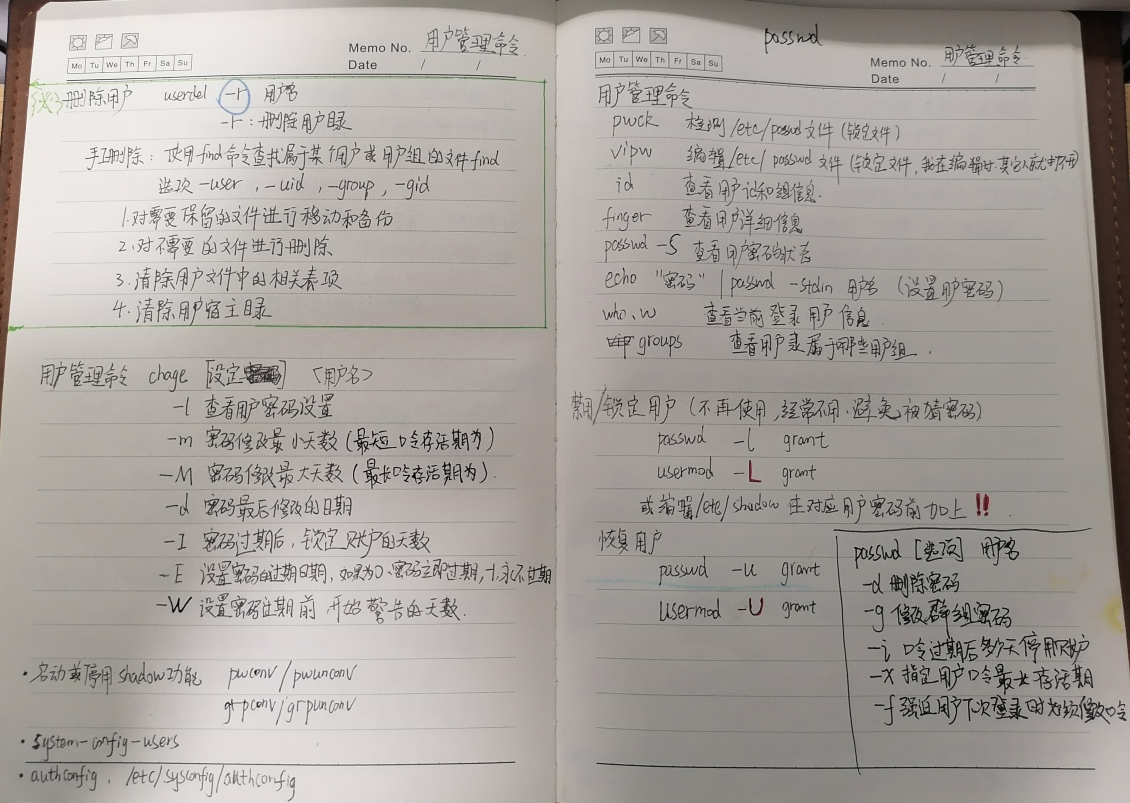 Memo No. 用户管理命令
Mo Tu We Th Fr Sa Su
Date / /
删除用户 userdel -r 用户名
-r：删除用户目录
手工删除：使用find命令查找属于某个用户或用户组的文件find
选项 -user，-uid，-group，-gid
1.对需要保留的文件进行移动和备份
2.对不需要的文件进行删除
3.清除用户文件中的相关表项
4.清除用户宿主目录
用户管理命令 chage [设定] <用户名>
-l 查看用户密码设置
-m 密码修改最小天数(最短口令存活期为)
-M 密码修改最大天数(最长口令存活期为).
-d 密码最后修改的日期
-I 密码过期后,锁定账户的天数
-E 设置密码的过期日期，如果为0、密码立即过期，-1.永不过期
-W 设置密码过期前 开始警告的天数.
·启动或停用shadow功能 pwconv/pwunconv
grpconv/grpunconv
·system-config-users
·authconfig、/etc/sysconfig/authconfig
passwd
Memo No. 用户管理命令
Mo Tu We Th Fr Sa Su
Date / /
用户管理命令
pwck 检测/etc/passwd文件(锁定文件)
vipw 编辑/etc/passwd文件(锁定文件，我在编辑时.其它人就打不开)
id 查看用户id和组信息.
finger 查看用户详细信息
passwd -S 查看用户密码状态
echo "密码" | passwd -stdin 用户名 (设置用户密码)
who、w 查看当前登录用户信息
groups 查看用户隶属于哪些用户组.
禁用/锁定用户(不再使用,经常不用.避免被猜密码)
passwd -l grant
usermod -L grant
或编辑/etc/shadow 在对应用户密码前加上!!.
恢复用户
passwd -u grant
usermod -U grant
passwd [选项] 用户名
-d 删除密码
-g 修改群组密码
-i 口令过期后多少天停用账户
-x 指定用户口令最长存活期
-f 强迫用户下次登录时必须修改口令